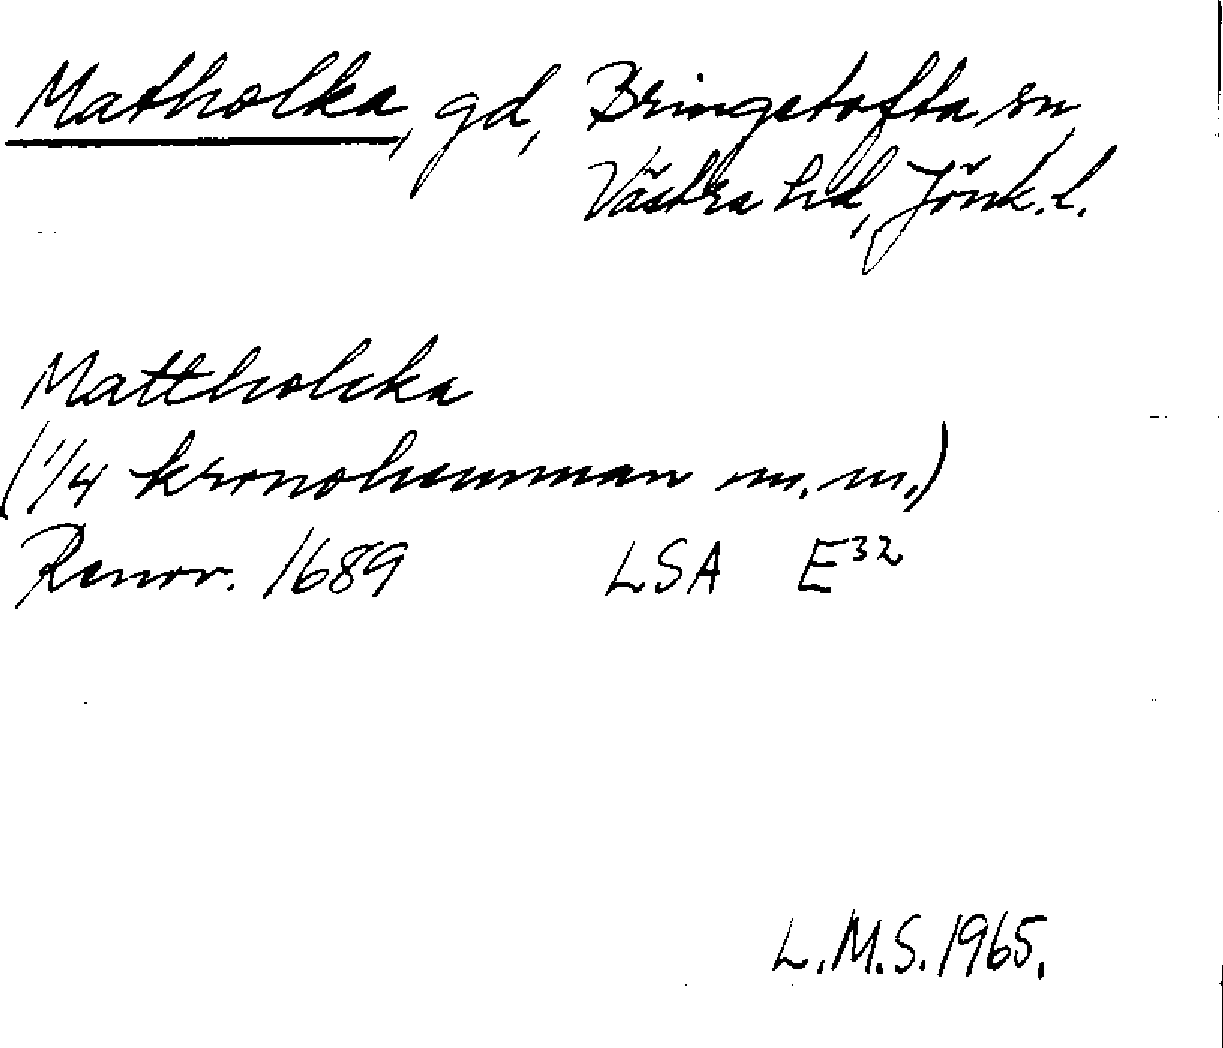 Matholka, gd, Bringetofta sn,
Västra hd, Jönk. l.
Mattholcka
(1/4 kronohemman m. m.)
Renov. 1689 LSA E32
L.M.S. 1965.